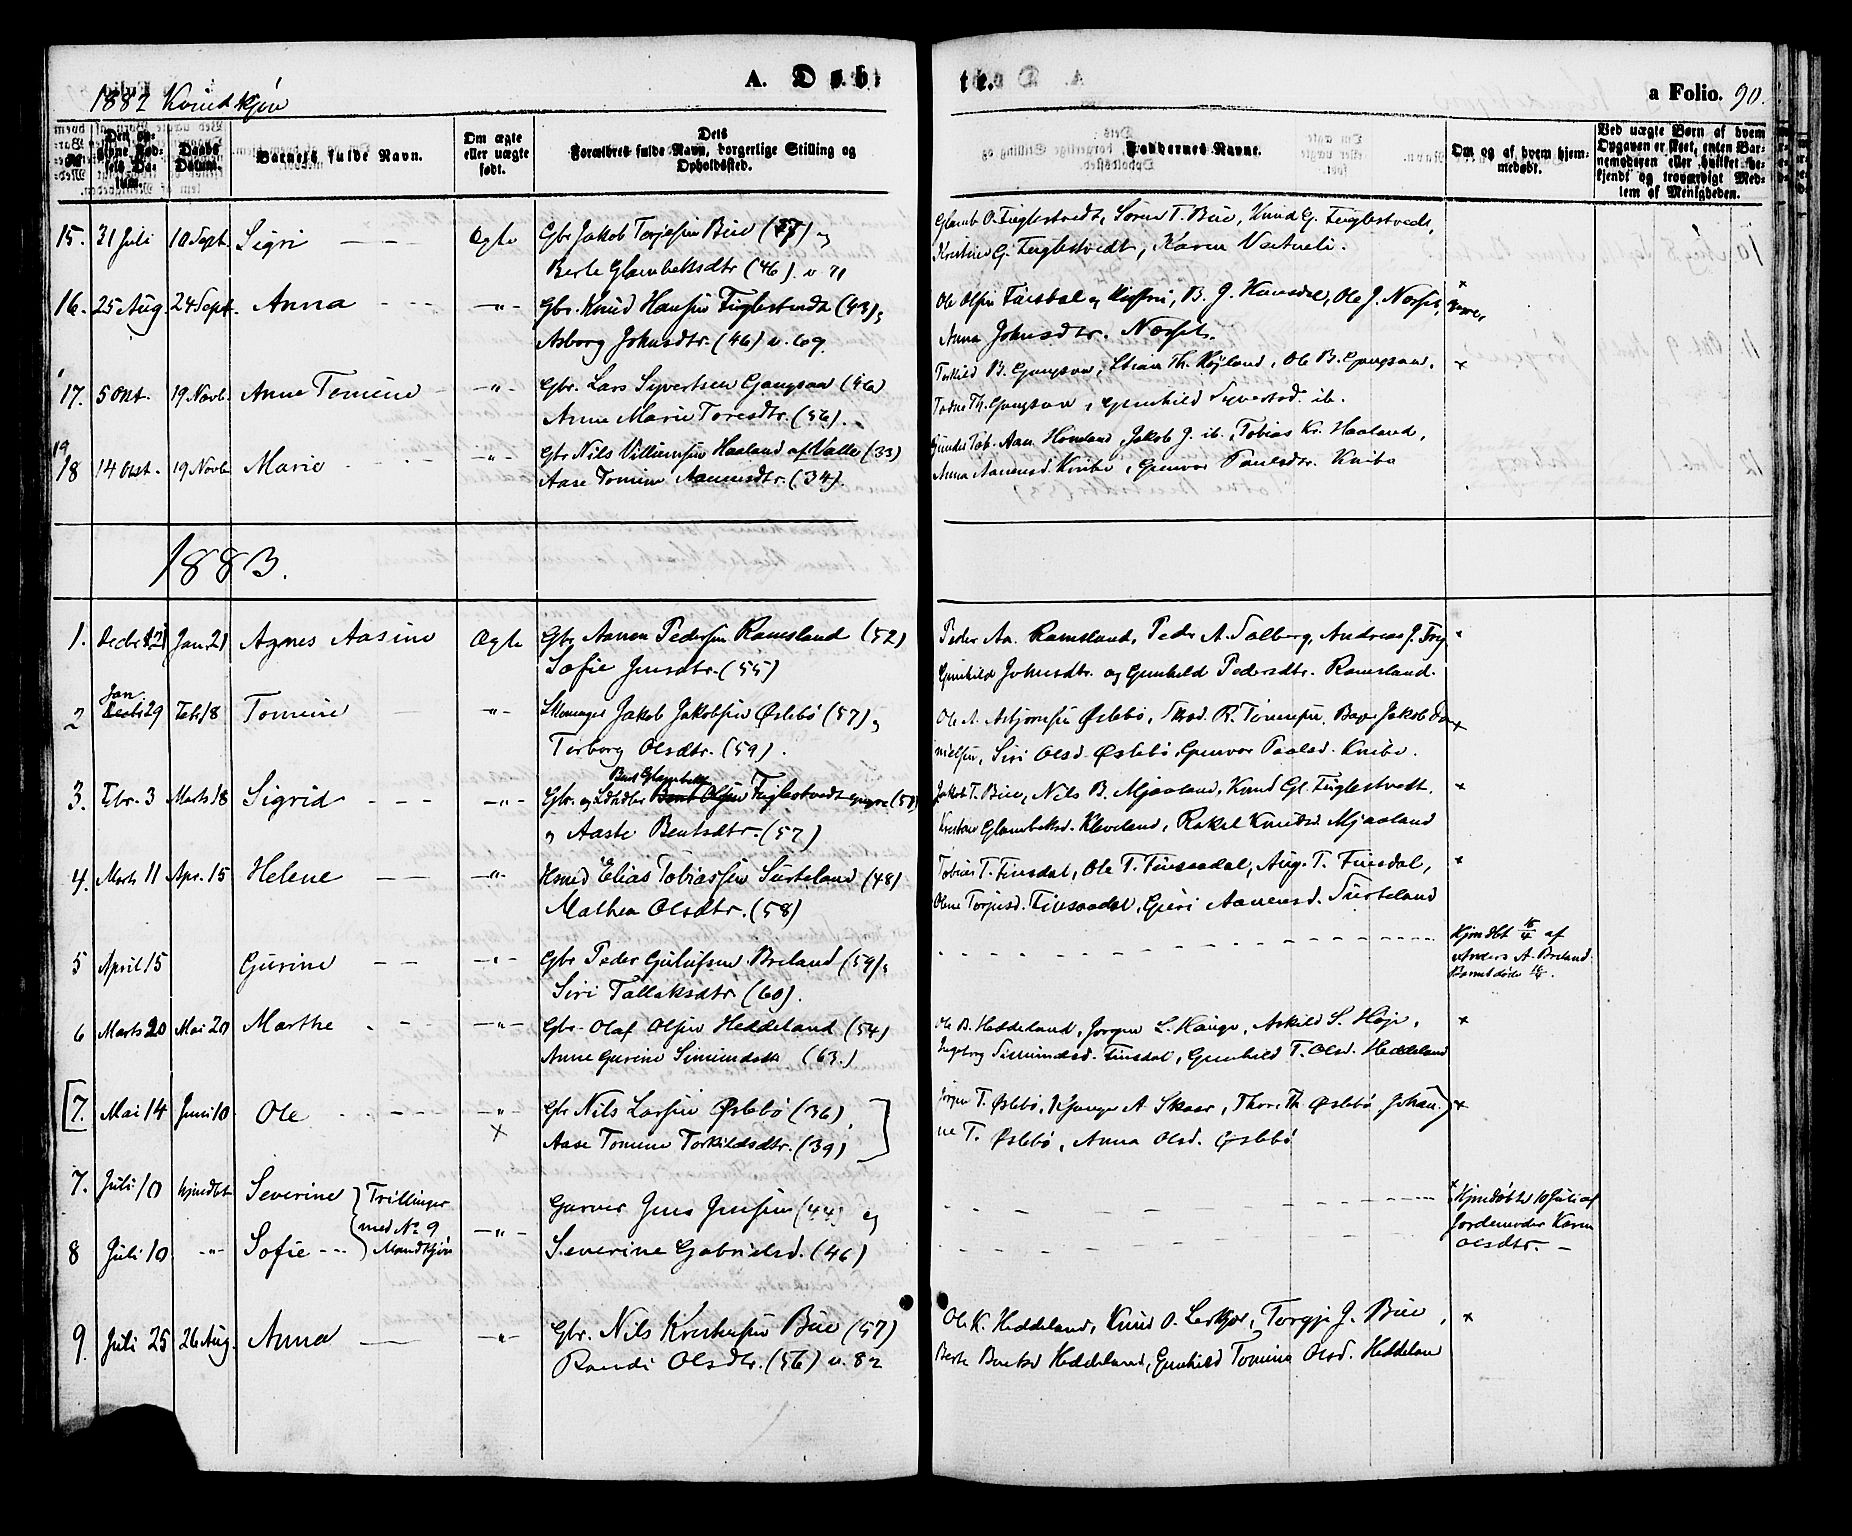 1882 Kvindkjøn
A. Døb-
te.
a Folio. 90.
Den op-
givne Fød-
sels Da-
tum.
Daabs
Datum.
Barnets fulde Navn.
Om ægte
eller uægte
født.
Dets
Forældres fulde Navn, borgerlige Stilling og
Opholdssted.
Faddernes Navne.
Om og af hvem hjem-
medøbt.
Ved uægte Børn af hvem
Opgaven er skeet, enten Bar-
nemoderen eller hvilket be-
kjendt og troværdigt Med-
lem af Menigheden.
15. 31 Juli 10 Sept. Sigri Ægte Gbr Jakob Torjesen Bue og
Berte Glambeksdtr (46)
Glambek O. Fuglestvedt, Søren T. Bue, Knud G. Fuglestvedt,
Kristine G. Fuglestvedt, Karen
16. 25 Aug. 24 Sept. Anna -"- Gbr. Knud Hansen Fuglestvedt (43),
Asborg Johnsdtr. (46)
Ole Olsen Finsdal og Hustru, B. J. Ole J.
Anna Johnsdtr.
17. 5 Okt. 19 Novb. Anne Tomine -"- Gbr. Lars Syvertsen Gangsaa (46)
Anne Marie Toresdtr. (56).
Torkild B. Gangsaa, Th. Røyland, Ole B. Gangsaa. x
Todne Th. Gangsaa, Gunhild Syvertsd. ib.
19
18 14 Okt. 19 Novb. Marie -"- Gbr Nils Villumsen Haaland af Valle (33)
Aase Tomine Aanensdtr. (34).
Gunder Tob. Aan. Homland, Jakob J. ib., Tobias Kr. Haaland,
Anna Aanensd. Knibe, Gunvor Paulsdtr. Knibe
1883.
1. Decbr 21 Jan. 21 Agnes Aasine Ægte Gbr Aanen Pedersen Ramsland (52)
Sofie Jensdtr. (55)
Peder Aa. Ramsland, Peder A. Solberg, Andreas J.
Gunhild Johnsdtr. og Gunhild Pedersdtr. Ramsland.
Jan
2 29 Feb. 18 Tomine -"- Jakob Jakobsen Øslebø (57),
Torborg Olsdtr. (59).
Ole A. Asbjørnsen Øslebø, R. Tønnesen, Jakob Da- x
nielsen, Siri Olsd. Øslebø, Gunvor Paulsd. Knibe.
Bent Glambek
3. Febr. 3 Marts 18 Sigrid -"- Gbr. og Bent Olsen Fuglestvedt
og Aaste Bentsdtr. (57)
Jakob T. Bue, Nils B. Mjaaland, Knud Gl. Fuglestvedt. x
Glambeksd. Kleveland, Rakel Knudsd. Mjaaland
4. Marts 11 Apr. 15 Helene -"- Hsmd Elias Tobiassen Surteland (48)
Mathea Olsdtr. (58)
Tobias T. Finsdal, Ole T. Finsaadal, Aug. T. Finsdal, x
Olene Torjusd. Finsaadal, Guri Aanensd. Surteland
5 April 15 Gurine -"- Gbr Peder Gulufsen Breland (59),
Siri Tallaksdtr (60).
Hjmdbt 15/4 af
Anders A. Breland.
Barnet døde
6 Marts 20 Mai 20 Marthe -"- Gbr. Olaf Olsen Heddeland (54)
Anne Gurine Simundsdtr (63.)
Ole B. Heddeland, Jørgen L. Hauge, Askild S. Høie, x
Ingeborg Simundsd. Finsdal, Gunhild T. Olsd. Heddeland
[7. Mai 14 Juni 10 Ole -"- Gbr Nils Larsen Øslebø (36),
x Aase Tomine Torkildsdtr. (39)]
Jørgen T. Øslebø, A. Skaar, Thore Th. Øslebø, Johan- x
ne T. Øslebø, Anna Olsd. Øslebø
7. Juli 10 hjmdbt Severine Trillinger
med No 9
Mandkjøn
8 Juli 10 -"- Sofie -"- Garver Jens Jensen (44) og
Severine Gabrielsd. (46)
Hjmdøbte 10 Juli af
Jordemoder Karen
Olsdtr. —
9. Juli 25 26 Aug. Anna -"- Gbr. Nils Kristensen Bue (57)
Randi Olsdtr. (56) v. 82
Ole K. Heddeland, Knud O. Torgje J. Bue, x
Berte Heddeland, Gunhild Tomine Olsd. Heddelan